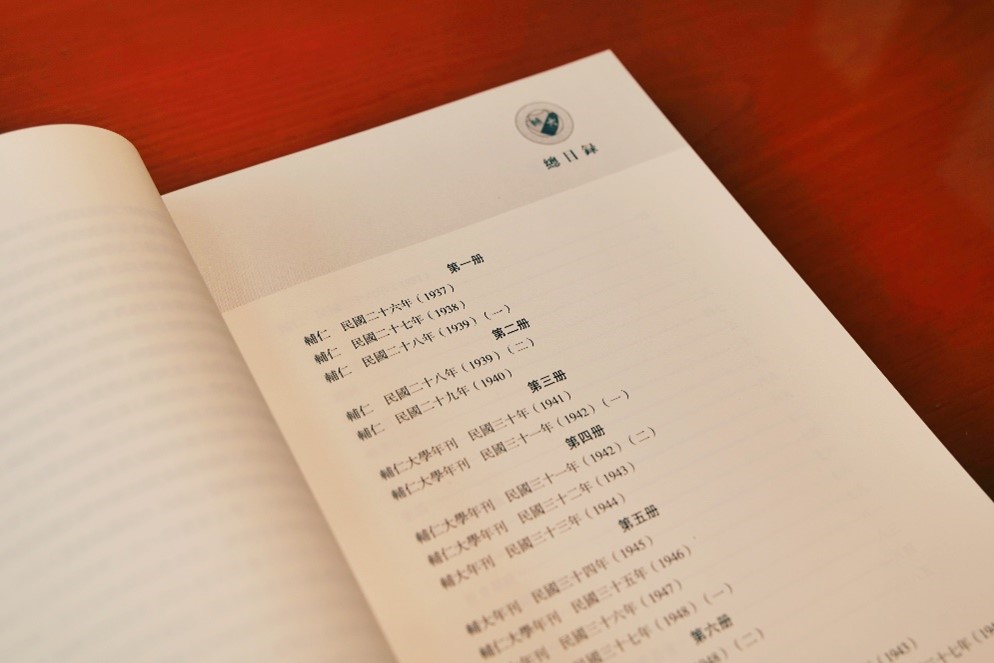 總目録
第一册
輔仁 民國二十六年（1937）
輔仁 民國二十七年（1938）
輔仁 民國二十八年（1939）（一）
第二册
輔仁 民國二十八年（1939）（二）
輔仁 民國二十九年（1940）
第三册
輔仁大學年刊 民國三十年（1941）
輔仁大學年刊 民國三十一年（1942）（一）
第四册
輔仁大學年刊 民國三十一年（1942）（二）
輔仁大學年刊 民國三十二年（1943）
輔大年刊 民國三十三年（1944）
第五册
輔大年刊 民國三十四年（1945）
輔仁大學年刊 民國三十五年（1946）
民國三十六年（1947）
三十七年（1948）（一）
第六册
（二）
（1943）
三十七年